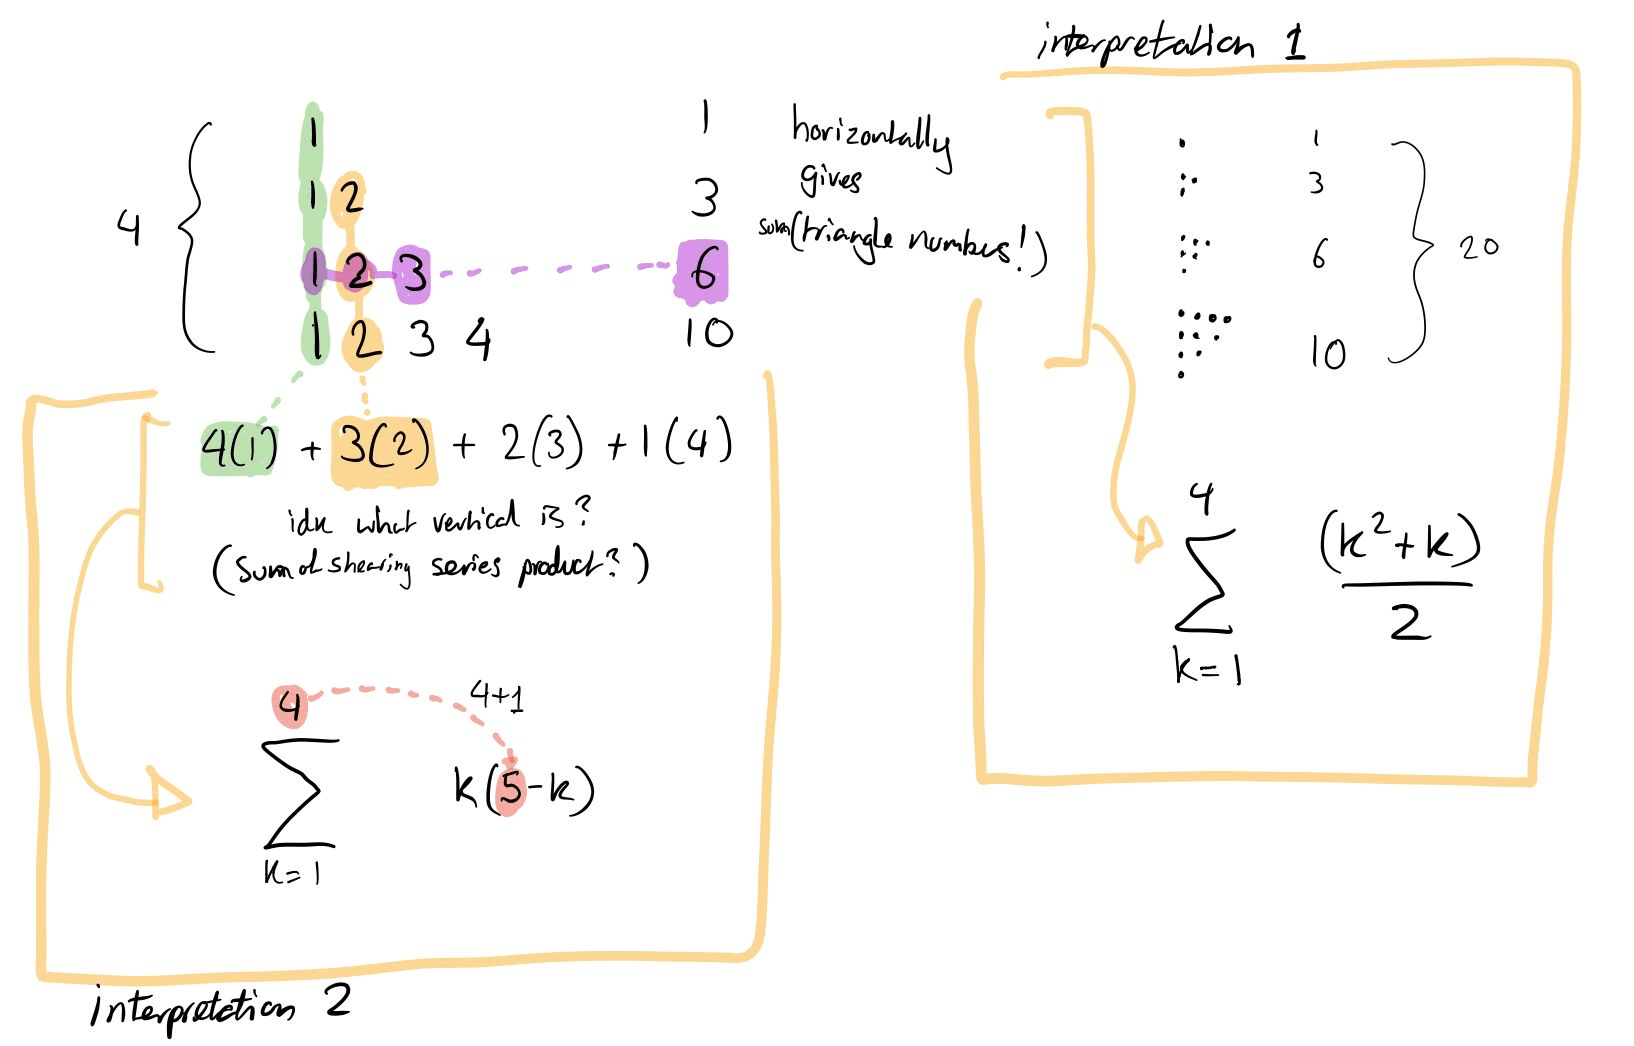 interpretation 1
1 1 horizontally
gives
1 2 3
sum(triangle numbers!)
4
1 2 3 6
1 2 3 4 10
1
3
6
10
20
4(1) + 3(2) + 2(3) + 1(4)
idk what vertical is?
(sum of shearing series product?)
4
∑ (k²+k)/2
k=1
4 4+1
∑ k(5-k)
k=1
interpretation 2